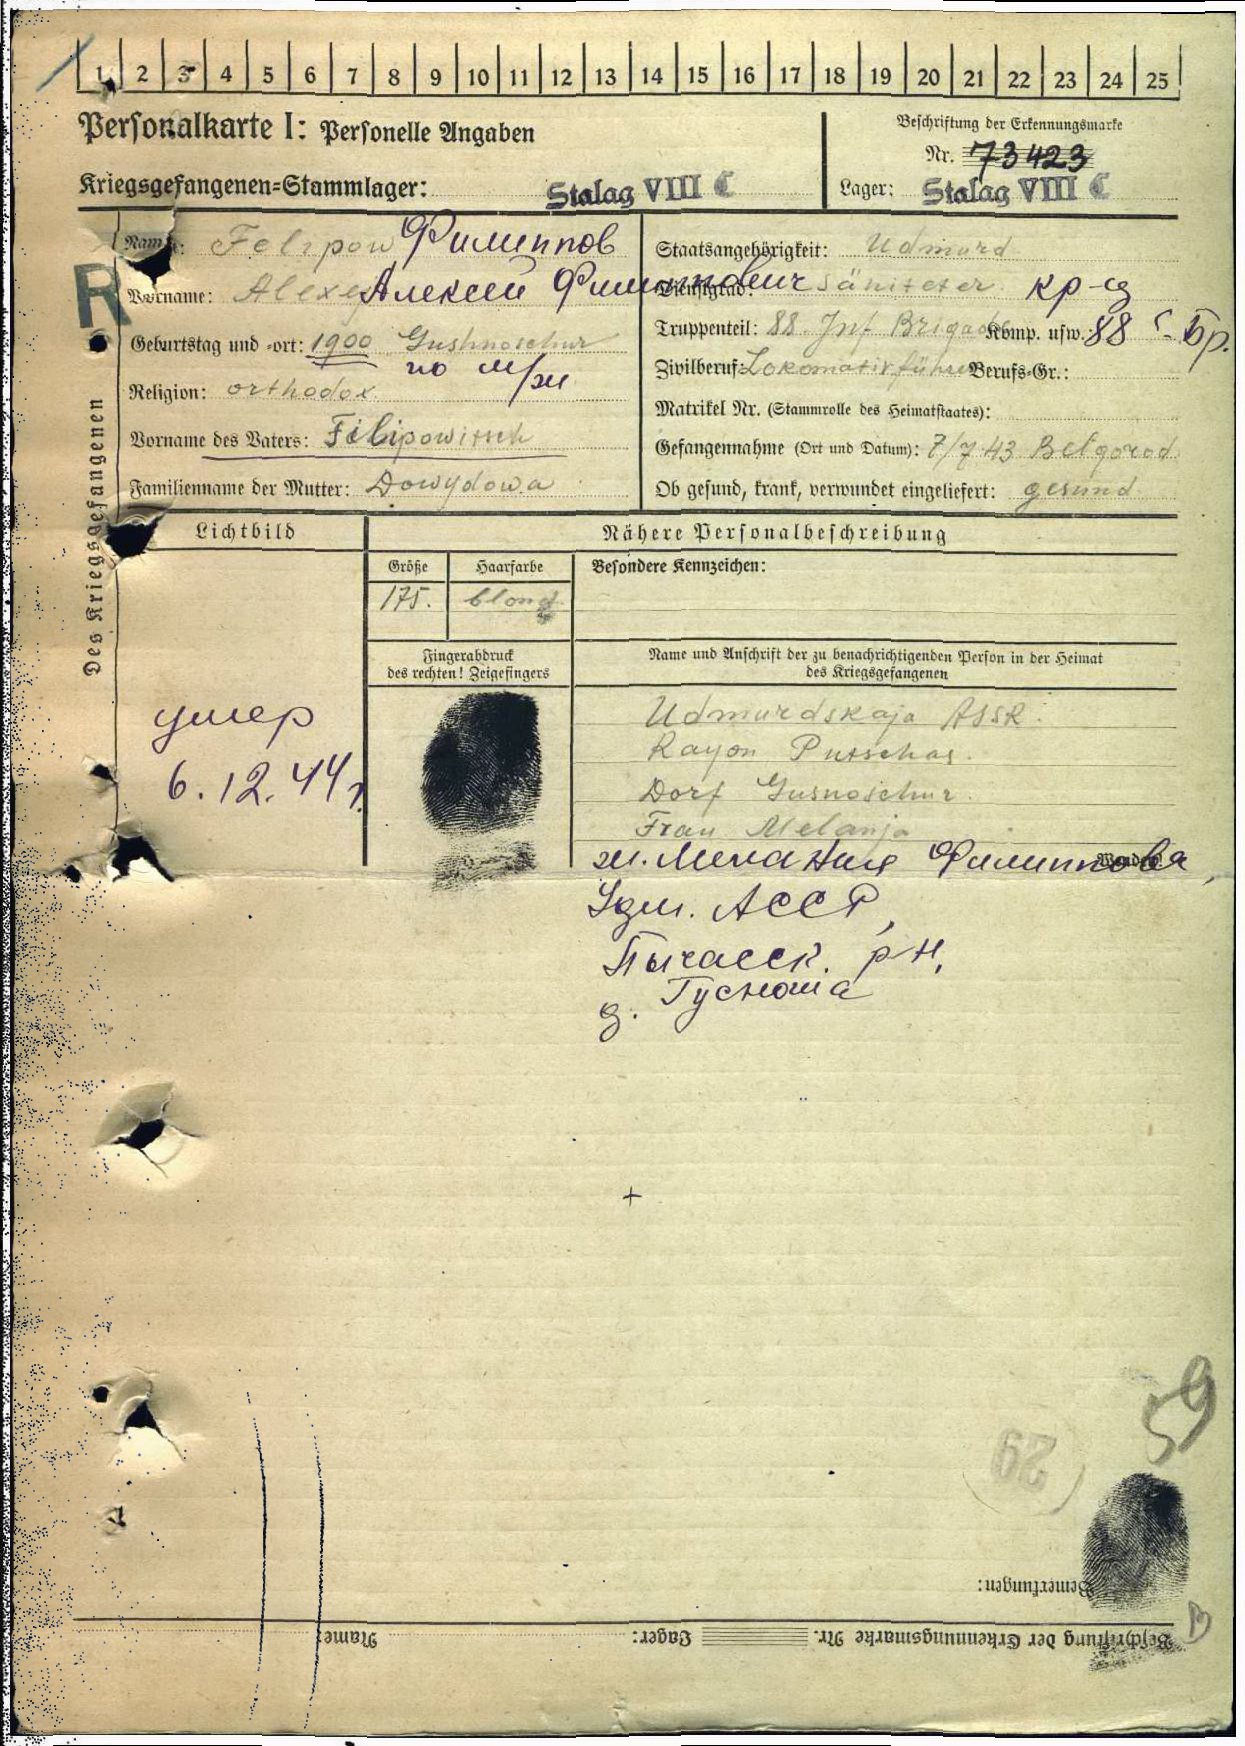 1 2 3 4 5 6 7 8 9 10 11 12 13 14 15 16 17 18 19 20 21 22 23 24 25
Personalkarte I: Personelle Angaben
Beschriftung der Erkennungsmarke
Nr. 73423
Kriegsgefangenen=Stammlager: Stalag VIII C
Lager: Stalag VIII C
Des Kriegsgefangenen
R
Name: Felipow Филиппов
Vorname: Alexej Алексей Филиппович
Geburtstag und -ort: 1900 Gushnoschur
по м/ж
Religion: orthodox
Vorname des Vaters: Filipowitsch
Familienname der Mutter: Dowydowa
Staatsangehörigkeit: Udmurd
Dienstgrad: Säniteter кр-ц
Truppenteil: 88. Inf Brigade Komp. usw.: 88 с-бр.
Zivilberuf: Lokomotivführer Berufs-Gr.:
Matrikel Nr. (Stammrolle des Heimatstaates):
Gefangennahme (Ort und Datum): 7/7.43 Belgorod
Ob gesund, krank, verwundet eingeliefert: gesund
Lichtbild
Nähere Personalbeschreibung
Größe
Haarfarbe
Besondere Kennzeichen:
175.
blond
Fingerabdruck
des rechten! Zeigefingers
Name und Anschrift der zu benachrichtigenden Person in der Heimat
des Kriegsgefangenen
умер
6.12.44г.
Udmurdskaja ASSR.
Rayon Putschas.
Dorf Gusnoschur
Frau Melanja
ж. Мелания Филиппова,
Удм. АССР,
Пычасск. р-н,
д. Гусноша
59
29
Bemerkungen:
B
Beschriftung der Erkennungsmarke Nr. Lager: Name: